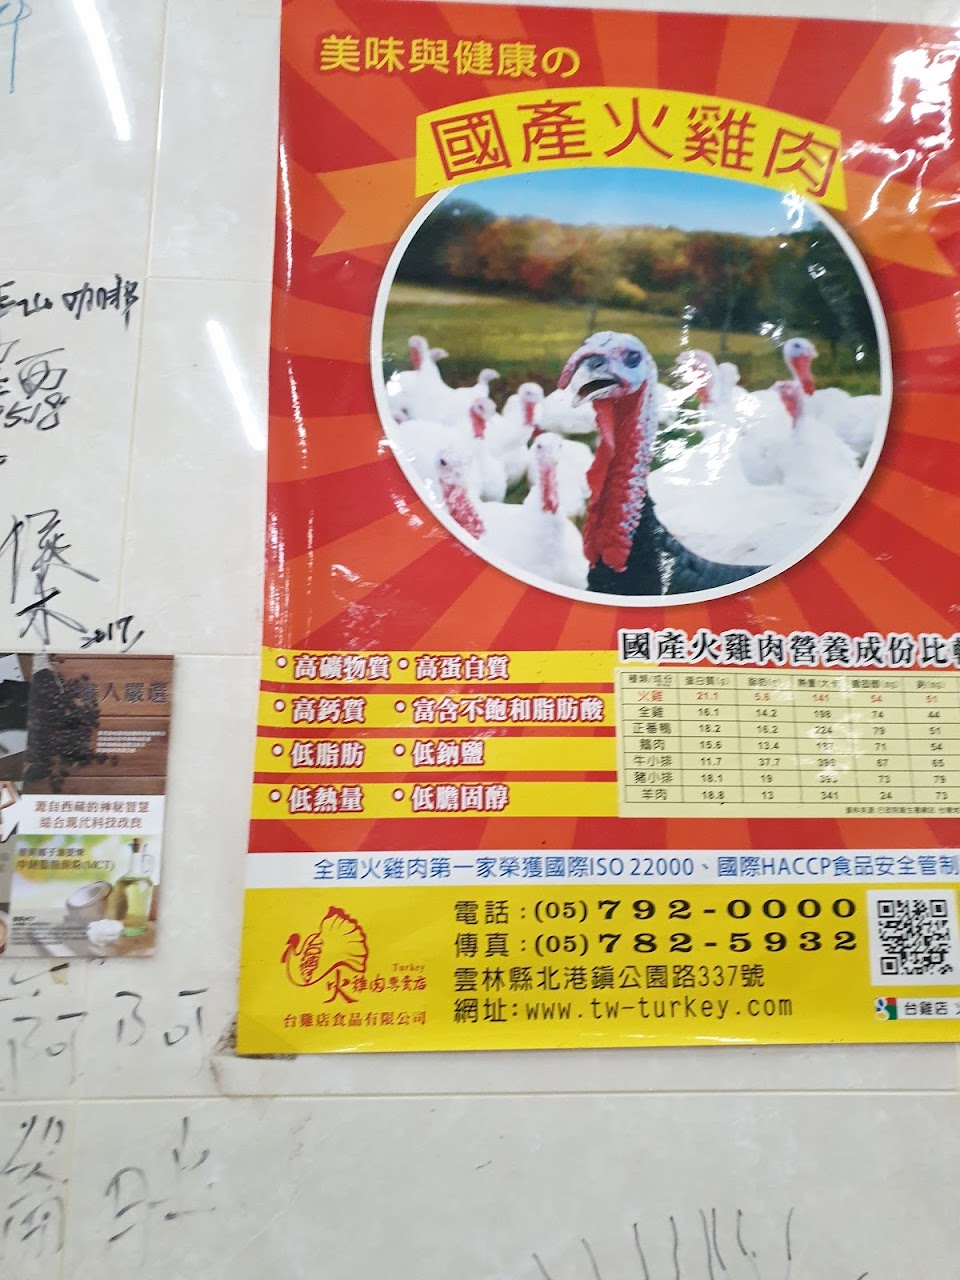 美味與健康の
國產火雞肉
山 咖啡
2017,
國產火雞肉營養成份比
•高礦物質 •高蛋白質
•高鈣質 •富含不飽和脂肪酸
•低脂肪 •低鈉鹽
•低熱量 •低膽固醇
種類/成份 蛋白質(g) 脂肪(g) 熱量(大卡) 膽固醇(mg) 鈉(mg)
火雞 21.1 5.6 141 54 51
全雞 16.1 14.2 198 74 44
正番鴨 18.2 16.2 224 79 51
鵝肉 15.6 13.4 187 71 54
牛小排 11.7 37.7 390 67 65
豬小排 18.1 19 393 73 79
羊肉 18.8 13 341 24 73
人嚴選
源自西藏的神秘智慧
結合現代科技改良
(MCT)
全國火雞肉第一家榮獲國際ISO 22000、國際HACCP食品安全管制
電話:(05)792-0000
傳真:(05)782-5932
雲林縣北港鎮公園路337號
網址:www.tw-turkey.com
台灣
Turkey
火雞肉專賣店
台雞店食品有限公司
台雞店